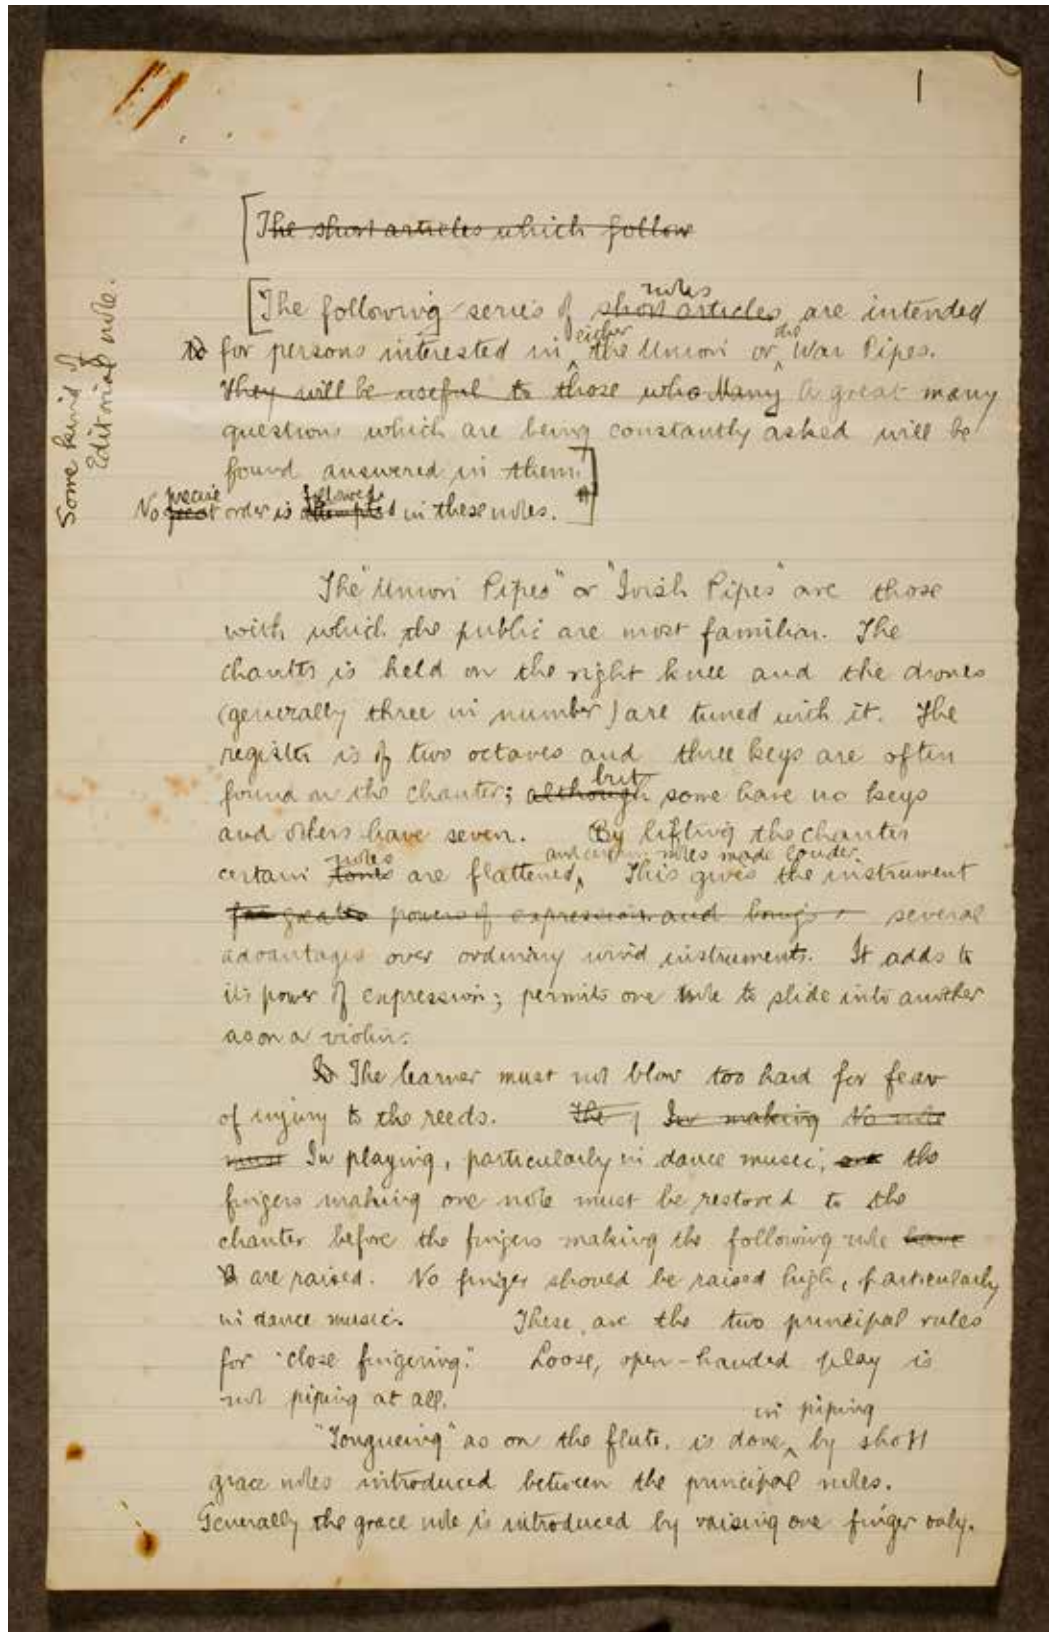 1
[The short articles which follow
Some kind of
Editorial note.
notes
[The following series of short articles, are intended
either the
to for persons interested in the Union or War Pipes.
They will be useful to those who Many A great many
questions which are being constantly asked will be
found answered in them.]
precise followed
No great order is attempted in these notes.
The "Union Pipes" or "Irish Pipes" are those
with which the public are most familiar. The
chanter is held on the right knee and the drones
(generally three in number) are tuned with it. The
register is of two octaves and three keys are often
but
found on the chanter; although some have no keys
and others have seven. By lifting the chanter
notes and certain notes made louder.
certain tones are flattened, This gives the instrument
far greater powers of expression and brings several
advantages over ordinary wind instruments. It adds to
its power of expression; permits one note to slide into another
as on a violin.
In The learner must not blow too hard for fear
of injury to the reeds. The In making No note
must In playing, particularly in dance music, the
fingers making one note must be restored to the
chanter before the fingers making the following note have
are raised. No finger should be raised high, particularly
in dance music. These are the two principal rules
for "close fingering." Loose, open-handed play is
not piping at all.
in piping
"Tongueing" as on the flute, is done by short
grace notes introduced between the principal notes.
Generally the grace note is introduced by raising one finger only.